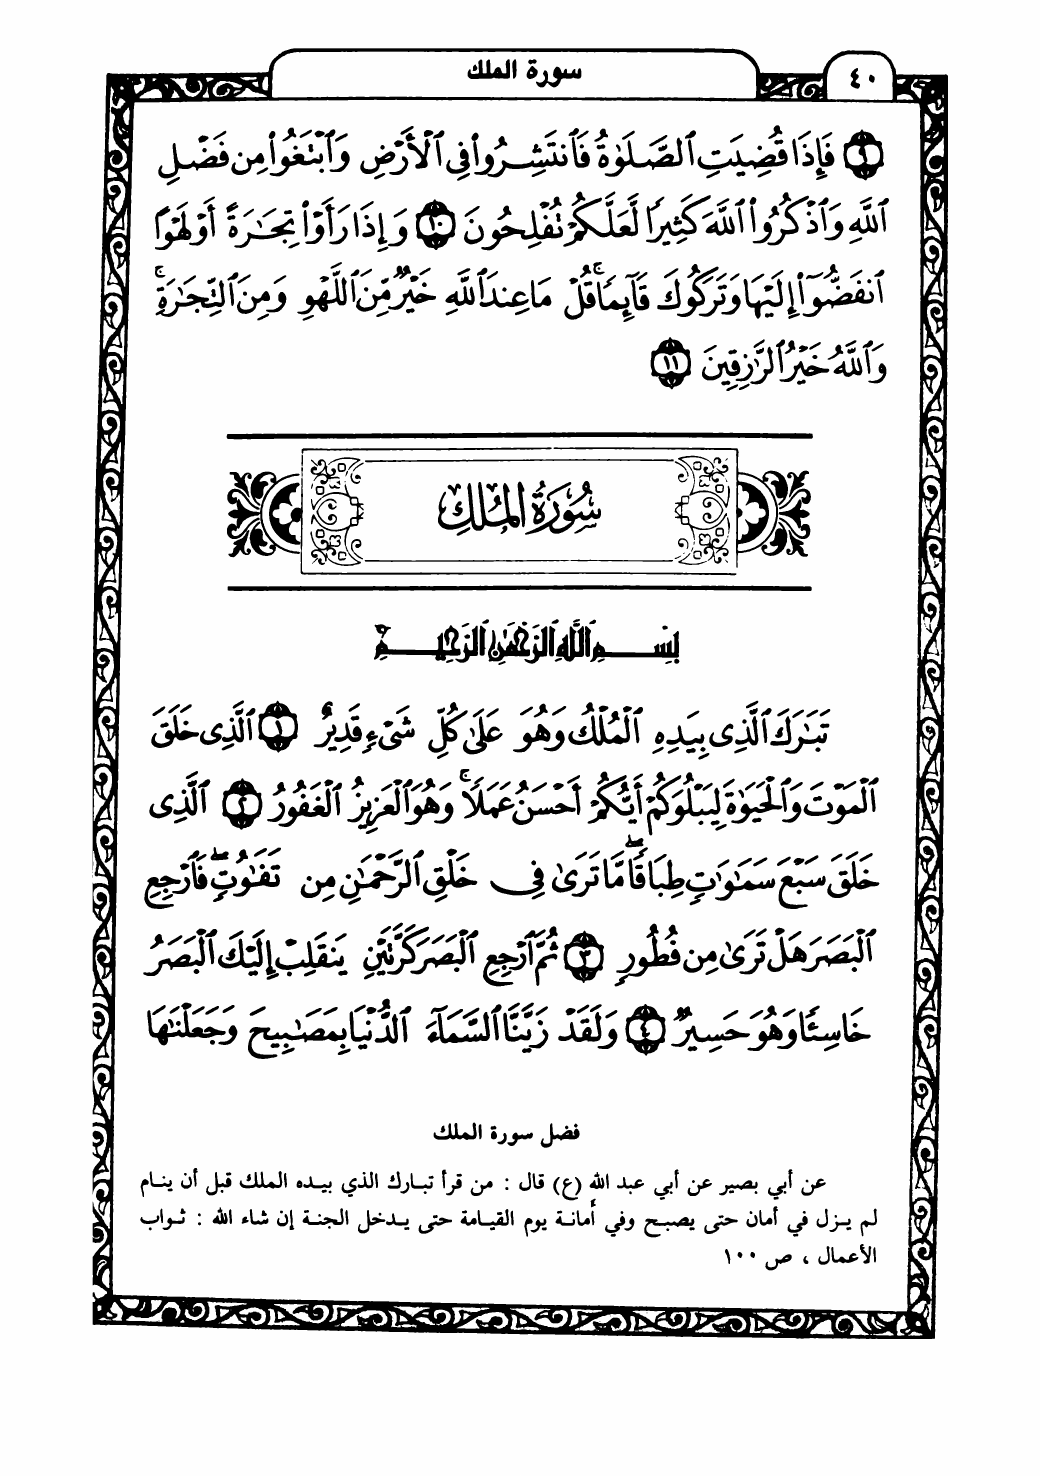 سورة الملك
٤٠
٩ فَإِذَا قُضِيَتِ ٱلصَّلَوٰةُ فَٱنتَشِرُوا۟ فِى ٱلْأَرْضِ وَٱبْتَغُوا۟ مِن فَضْلِ
ٱللَّهِ وَٱذْكُرُوا۟ ٱللَّهَ كَثِيرًا لَّعَلَّكُمْ تُفْلِحُونَ ١٠ وَإِذَا رَأَوْا۟ تِجَـٰرَةً أَوْ لَهْوًا
ٱنفَضُّوٓا۟ إِلَيْهَا وَتَرَكُوكَ قَآئِمًا ۚ قُلْ مَا عِندَ ٱللَّهِ خَيْرٌ مِّنَ ٱللَّهْوِ وَمِنَ ٱلتِّجَـٰرَةِ ۚ
وَٱللَّهُ خَيْرُ ٱلرَّٰزِقِينَ ١١
سُورَةُ المُلْكِ
بِسْمِ ٱللَّهِ ٱلرَّحْمَـٰنِ ٱلرَّحِيمِ
تَبَـٰرَكَ ٱلَّذِى بِيَدِهِ ٱلْمُلْكُ وَهُوَ عَلَىٰ كُلِّ شَىْءٍ قَدِيرٌ ١ ٱلَّذِى خَلَقَ
ٱلْمَوْتَ وَٱلْحَيَوٰةَ لِيَبْلُوَكُمْ أَيُّكُمْ أَحْسَنُ عَمَلًا ۚ وَهُوَ ٱلْعَزِيزُ ٱلْغَفُورُ ٢ ٱلَّذِى
خَلَقَ سَبْعَ سَمَـٰوَٰتٍ طِبَاقًا ۖ مَّا تَرَىٰ فِى خَلْقِ ٱلرَّحْمَـٰنِ مِن تَفَـٰوُتٍ ۖ فَٱرْجِعِ
ٱلْبَصَرَ هَلْ تَرَىٰ مِن فُطُورٍ ٣ ثُمَّ ٱرْجِعِ ٱلْبَصَرَ كَرَّتَيْنِ يَنقَلِبْ إِلَيْكَ ٱلْبَصَرُ
خَاسِئًا وَهُوَ حَسِيرٌ ٤ وَلَقَدْ زَيَّنَّا ٱلسَّمَآءَ ٱلدُّنْيَا بِمَصَـٰبِيحَ وَجَعَلْنَـٰهَا
فضل سورة الملك
عن أبي بصير عن أبي عبد الله (ع) قال : من قرأ تبارك الذي بيده الملك قبل أن ينام
لم يزل في أمان حتى يصبح وفي أمانة يوم القيامة حتى يدخل الجنة إن شاء الله : ثواب
الأعمال ، ص ١٠٠